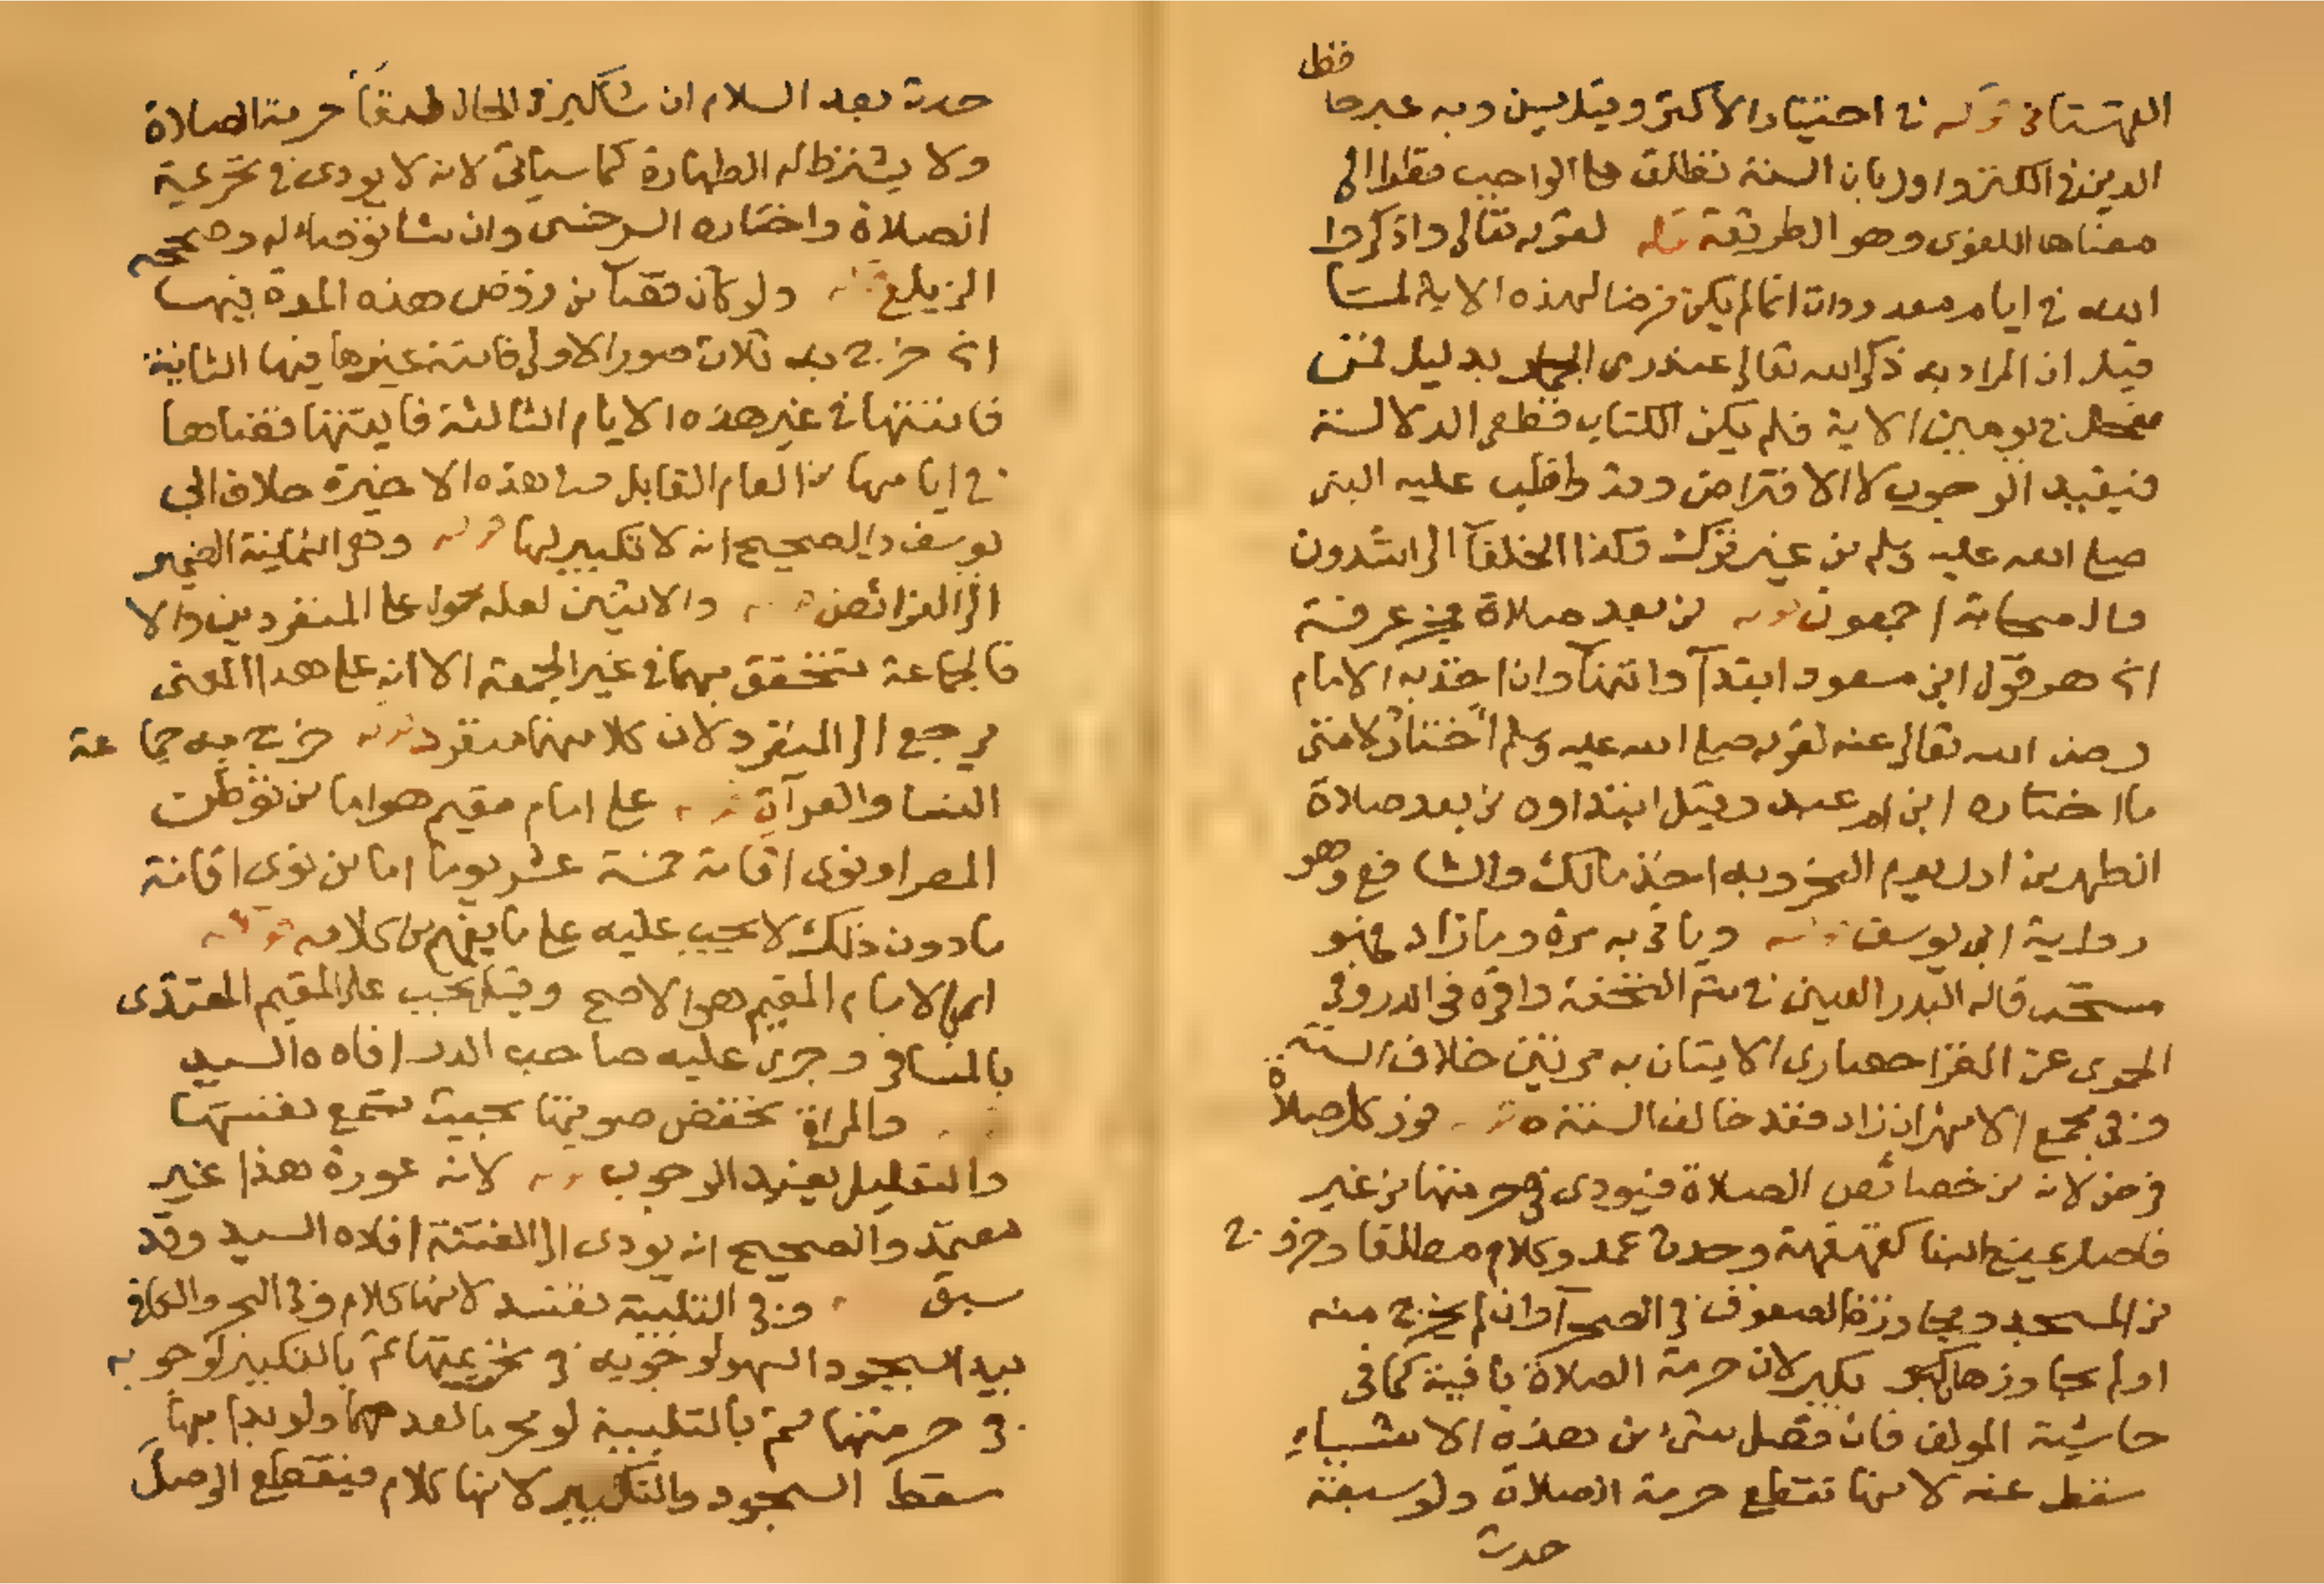 فظل
القهستاني قوله في اختيار الاكثر وقيل يسن وبه عبر حا
الدين في الكنز واورد بان السنة تطلق على الواجب نظرا الى
معناها اللغوي وهو الطريقة قوله لقوله تعالى واذكروا
الله في ايام معدودات انما لم يكن فرضا لهذه الاية لما
قيل ان المراد به ذكر الله تعالى عند رمي الجمار بدليل فمن
تعجل في يومين الاية فلم يكن الكتاب قطعي الدلالة
فيفيد الوجوب لا الافتراض وقد واظب عليه النبي
صلى الله عليه وسلم من غير ترك وكذا الخلفآ الراشدون
والصحابة اجمعون قوله من بعد صلاة فجر عرفة
الخ هو قول ابن مسعود ابتدآ وانتهآ وان اخذ به الامام
رضي الله تعالى عنه لقوله صلى الله عليه وسلم اخترت لامتي
ما اختاره ابن ام عبد وقيل ابتداوه من بعد صلاة
الظهر من اول يوم النحر وبه اخذ مالك والشافعي وهو
رواية ابي يوسف قوله وياتي به مرة وما زاد فهو
مستحب قاله البدر العيني في شرح التحفة واقره في الدر وفي
الحموي عن القراحصاري الاتيان به مرتين خلاف السنة
وفي مجمع الانهر ان زاد فقد خالف السنة قوله فور كل صلاة
فرض لانه من خصائص الصلاة فيودى في حرمتها من غير
فاصل يمنع البنا كقهقهة وحدث عمد وكلام مطلقا وخروج
من المسجد ومجاوزة الصفوف في الصحرآ وان لم يخرج منه
او لم يجاوزها يكبر لان حرمة الصلاة باقية كما في
حاشية المولف فان فصل شيء من هذه الاشياء
سقط عنه لانها تقطع حرمة الصلاة ولو سبقه
حدث
حدث بعد السلام ان شا كبر في الحال لبقآ حرمة الصلاة
ولا يشترط له الطهارة كما سياتي لانه لا يودى في تحريمة
الصلاة واختاره السرخسي وان شا توضا له وصححه
الزيلعي قوله ولو كان قضآ من فروض هذه المدة فيها
الخ خرج به ثلاث صور الاولى فائتة غيرها فيها الثانية
فائتتها في غير هذه الايام الثالثة فايتتها قضاها
في ايامها من العام القابل وفي هذه الاخيرة خلاف ابي
يوسف والصحيح انه لا تكبير لها قوله وهي الثمانية الضمير
الى الفرائض قوله والاثنين لعله محمول على المنفردين والا
فالجماعة تتحقق بهما في غير الجمعة الا انه على هذا المعنى
يرجع الى المنفرد لان كلا منهما منفرد قوله خرج به جماعة
النسا والعراة قوله على امام مقيم هو اما من توطن
المصر او نوى اقامة خمسة عشر يوما اما من نوى اقامة
ما دون ذلك لا يجب عليه على ما يفهم من كلامه قوله
اي الامام المقيم هو الاصح وقيل يجب على المقيم المقتدى
بالمسافر وجرى عليه صاحب الدر افاده السيد
والمراة تخفض صوتها بحيث تسمع نفسها
والتعليل يفيد الوجوب قوله لانه عورة هذا غير
معتمد والصحيح انه يودى الى الفتنة افاده السيد وقد
سبق وفي التلبية تفسد لانها كلام وفي البحر والكافي
يبدا بسجود السهو لوجوبه في تحريمتها ثم بالتكبير لوجوبه
في حرمتها ثم بالتلبية لو محرما لعدمهما ولو بدا بها
سقط السجود والتكبير لانها كلام فيقطع الوصل